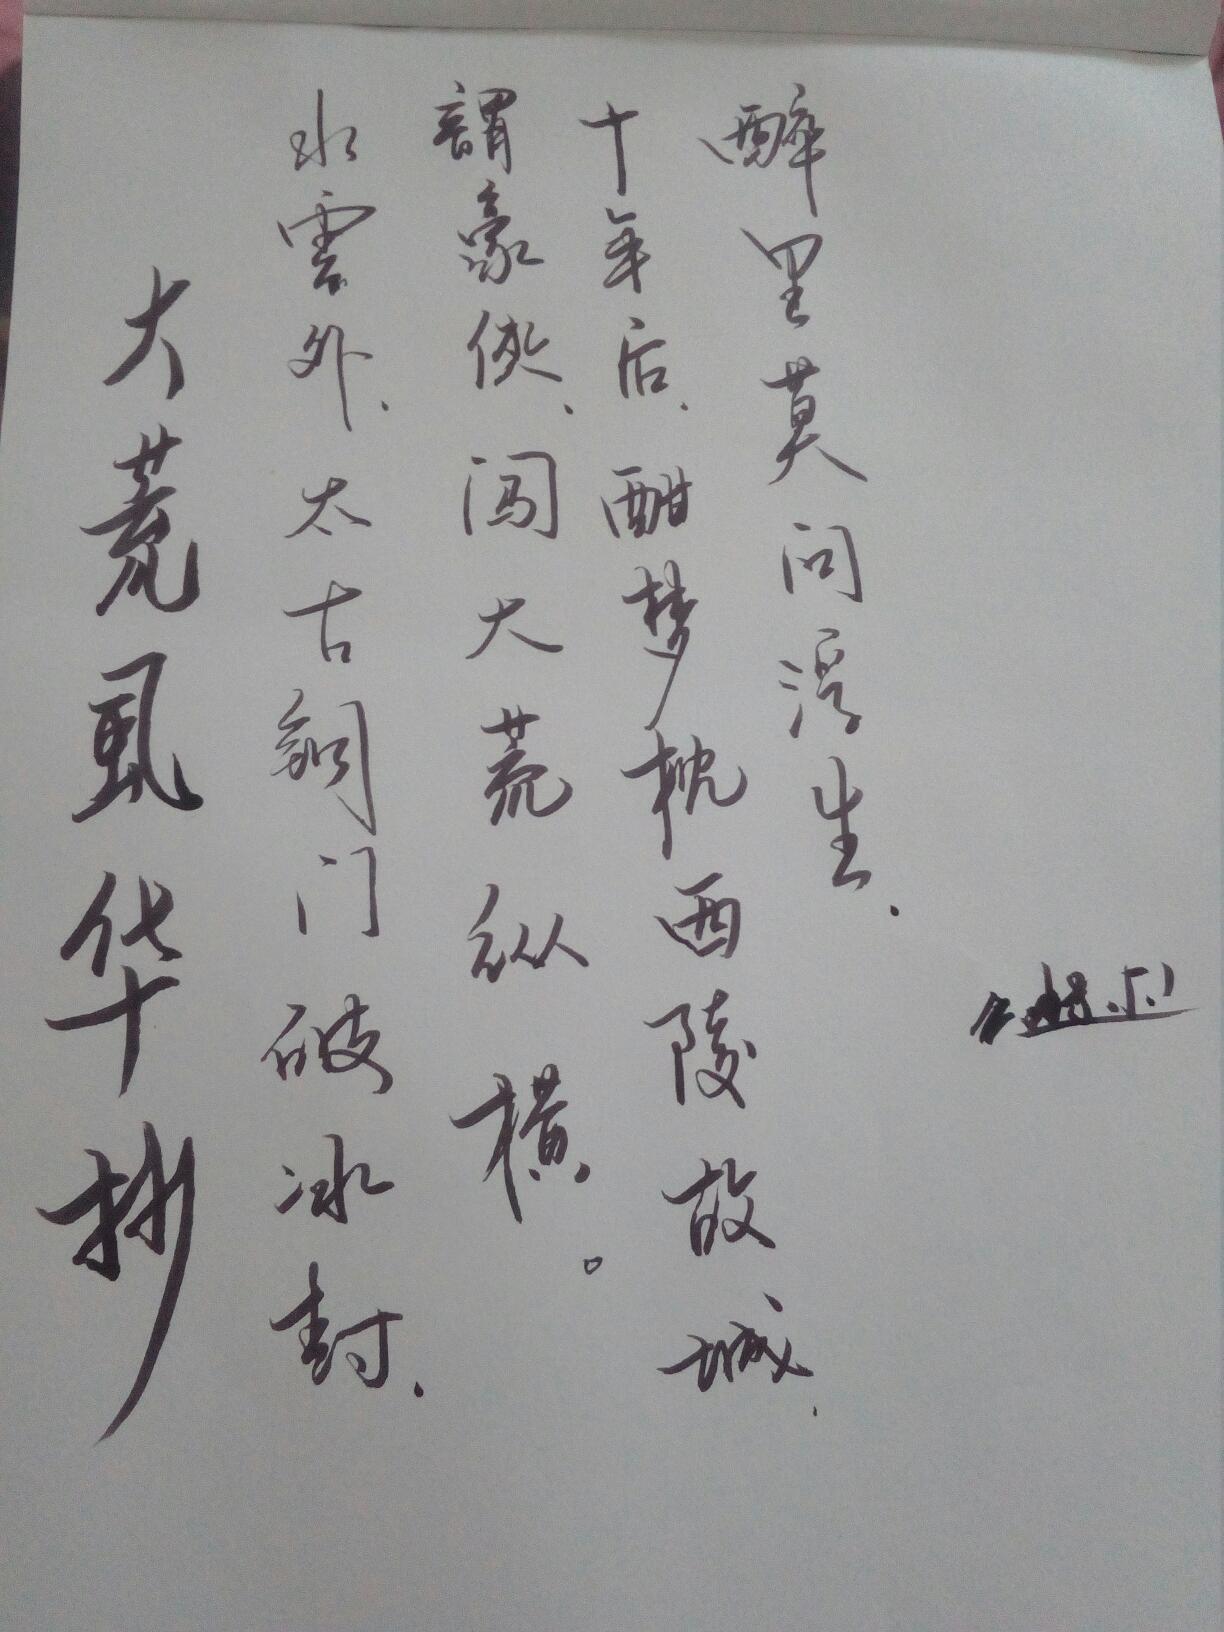 大荒風华抄
水雲外、太古銅门破冰封、
謂豪俠、闯大荒纵横。
十年后、酣梦枕西陵故城、
醉里莫问浮生、